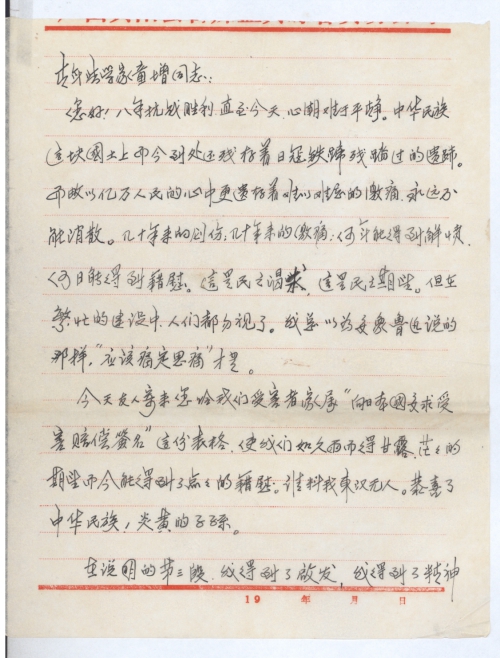 青年法学家童增同志：
您好！八年抗战胜利直至今天，心潮难于平静。中华民族
这块國土上而今到处还残存着日寇铁蹄残踏过的遗跡。
而数以亿万人民的心中更遗存着难以难忍的激痛，永远不
能消散。几十年来的创伤，几十年来的激痛，何年能得到解决，
何日能得到籍慰。這是民之渴求，這是民之期望。但在
繁忙的建设中，人们都勿视了。我总以为要象鲁迅说的
那样，“应该痛定思痛”才是。
今天友人寄来您给我们受害者家属“向日本國要求受
害赔偿签名”这份表格，使我们如久雨而得甘露，茫茫的
期望而今能得到了点点的籍慰。谁料我東汉无人。恭喜了
中华民族，炎黄的子子孫。
在说明的第三段，我得到了啟发，我得到了精神
19 年 月 日